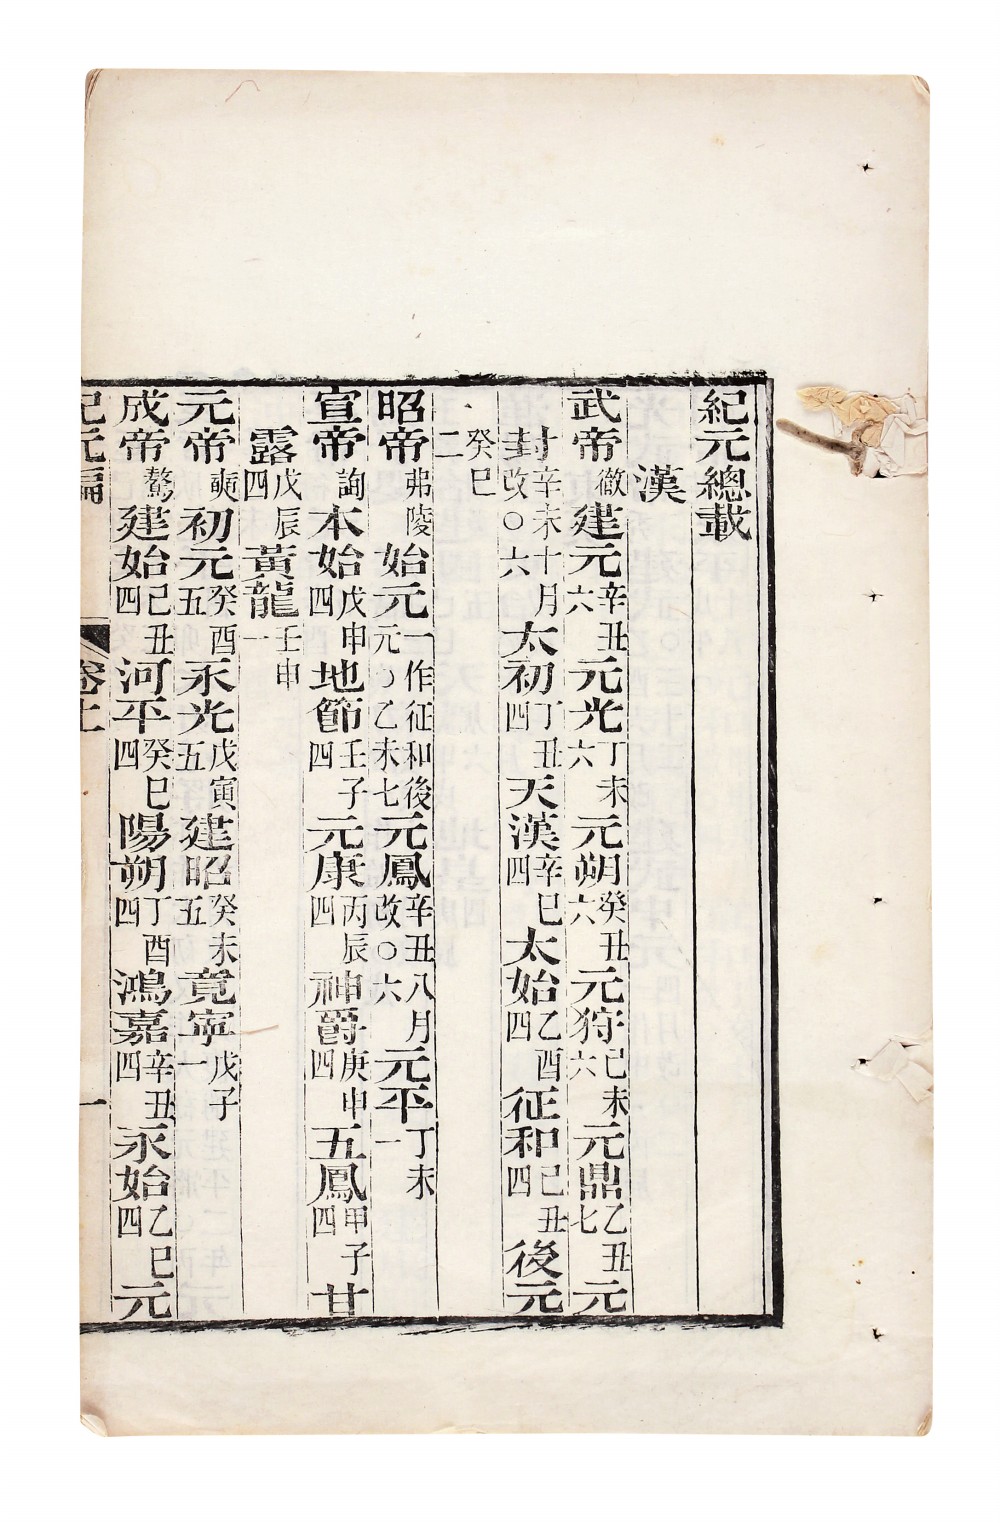 紀元總載
漢
武帝徹建元辛丑六元光丁未六元朔癸丑六元狩己未六元鼎乙丑七元
封辛未十月改〇六太初丁丑四天漢辛巳四太始乙酉四征和己丑四後元
癸巳二
昭帝弗陵始元一作征和後元〇乙未七元鳳辛丑八月改〇六元平丁未一
宣帝詢本始戊申四地節壬子四元康丙辰四神爵庚申四五鳳甲子四甘
露戊辰四黃龍壬申一
元帝奭初元癸酉五永光戊寅五建昭癸未五竟寧戊子一
成帝驁建始己丑四河平癸巳四陽朔丁酉四鴻嘉辛丑四永始乙巳四元
紀元編 卷上 一